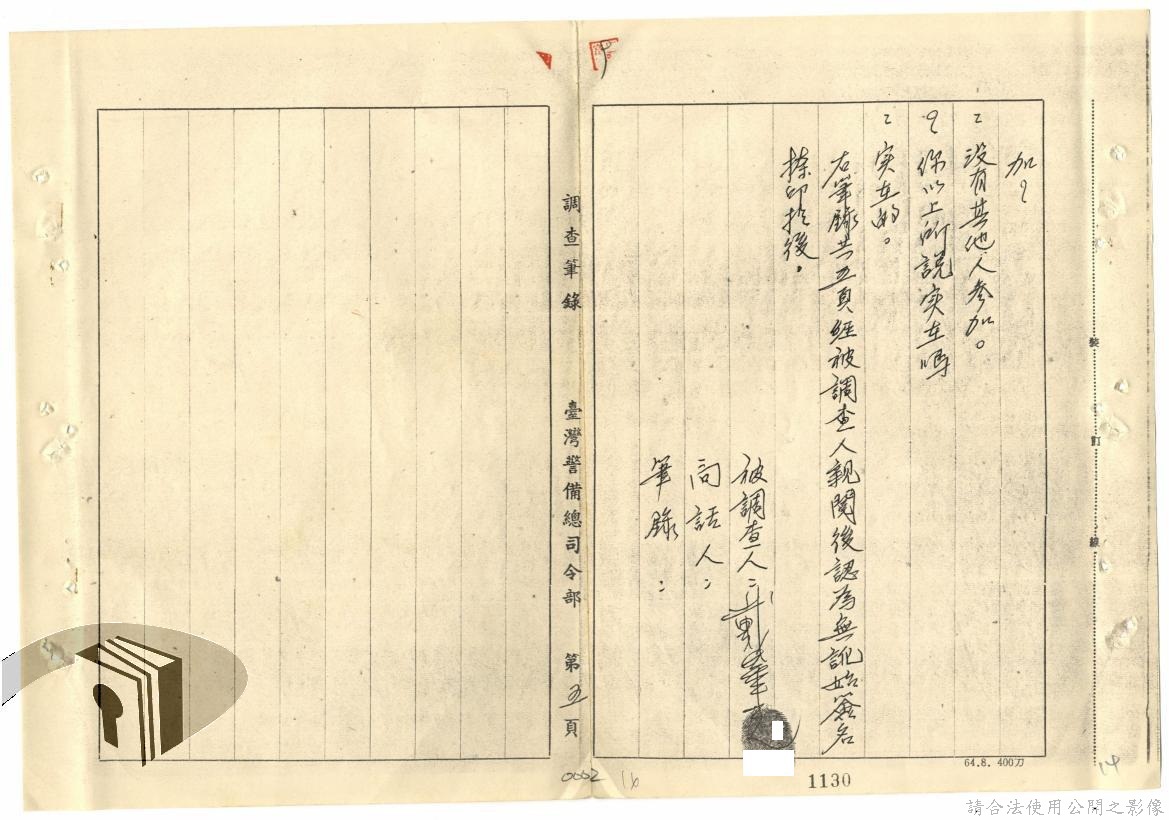 加？
：没有其他人参加。
？你以上所說实在嗎
：实在的。
右筆錄共五頁經被調查人親閱後認為無訛始簽名
捺印於後。
被調查人：戴華
問話人：
筆錄：
調查筆錄 臺灣警備總司令部 第五頁
裝 訂 線
64.8. 400刀
1130
0002
16
14
請合法使用公開之影像